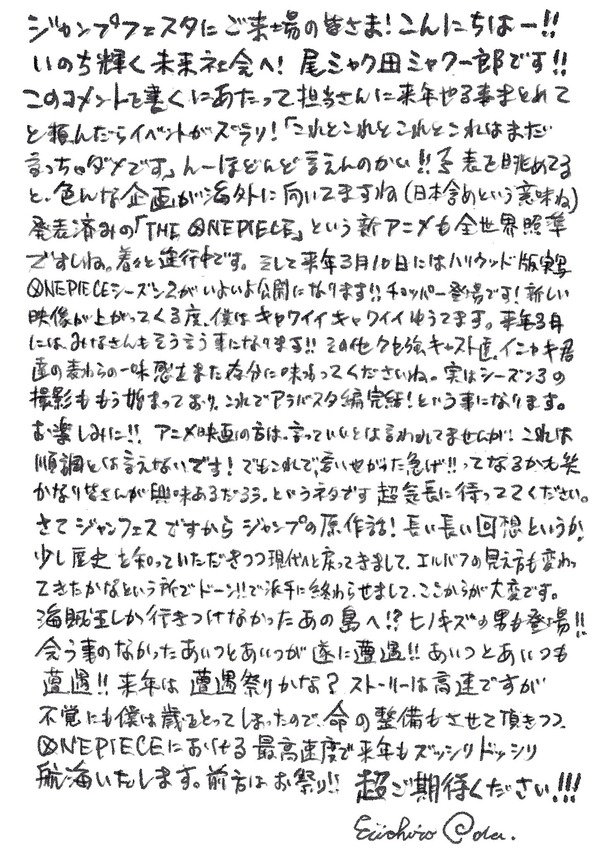 ジャンプフェスタにご来場の皆さま！こんにちはー！！
いのち輝く未来社会へ！尾ミャク田ミャクー郎です！！
このコメントを書くにあたって担当さんに来年やる事まとめて
と頼んだらイベントがズラリ！「これとこれとこれとこれはまだ
言っちゃダメです」んーほどんど言えんのかい！！予表を眺めてる
と、色んな企画が海外に向いてますね（日本含めという意味ね）
発表済みの「THE ONE PIECE」という新アニメも全世界照準
ですしね。着々と進行中です。そして来年3月10日にはハリウッド版実写
ONE PIECEシーズン2がいよいよ公開になります！！チョッパー登場です！新しい
映像が上がってくる度、僕はキャワイイキャワイイゆうてます。来年3月
には、みなさんもそう言う事になります！！その他クセ強キャスト達、イニャキ君
達の麦わらの一味感もまた存分に味わってくださいね。実はシーズン3の
撮影ももう始まっており、これでアラバスタ編完結！という事になります。
お楽しみに！！アニメ映画の方は、言っていいとは言われてませんが！これは
順調とは言えないです！でもこれで、言いやがった急げ！！ってなるかも笑
かなり皆さんが興味あるだろう、というネタです 超気長に待っててください。
さてジャンフェスですからジャンプの原作話！長い長い回想というか、
少し歴史を知っていただきつつ現代へと戻ってきまして、エルバフの見え方も変わっ
てきたかなという所でドーン！！で派手に終わらせまして、ここからが大変です。
海賊王しか行きつけなかったあの島へ！？ヒノキズの男も登場！！
会う事のなかったあいつとあいつが遂に遭遇！！あいつとあいつも
遭遇！！来年は遭遇祭りかな？ストーリーは高速ですが
不覚にも僕は歳をとってしまったので、命の整備もさせて頂きつつ、
ONE PIECEにおける最高速度で来年もズッシリドッシリ
航海いたします。前方はお祭り！！超ご期待ください！！！
Eiichiro Oda.